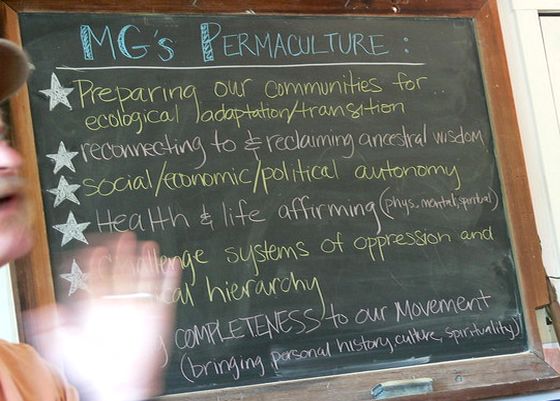 MG's PERMACULTURE :
Preparing our communities for
ecological adaptation/transition
reconnecting to & reclaiming ancestral wisdom
social/economic/political autonomy
Health & life affirming (phys. mental, spiritual)
challenge systems of oppression and
hierarchy
COMPLETENESS to our MOVEMENT
(bringing personal history, culture, spirituality)